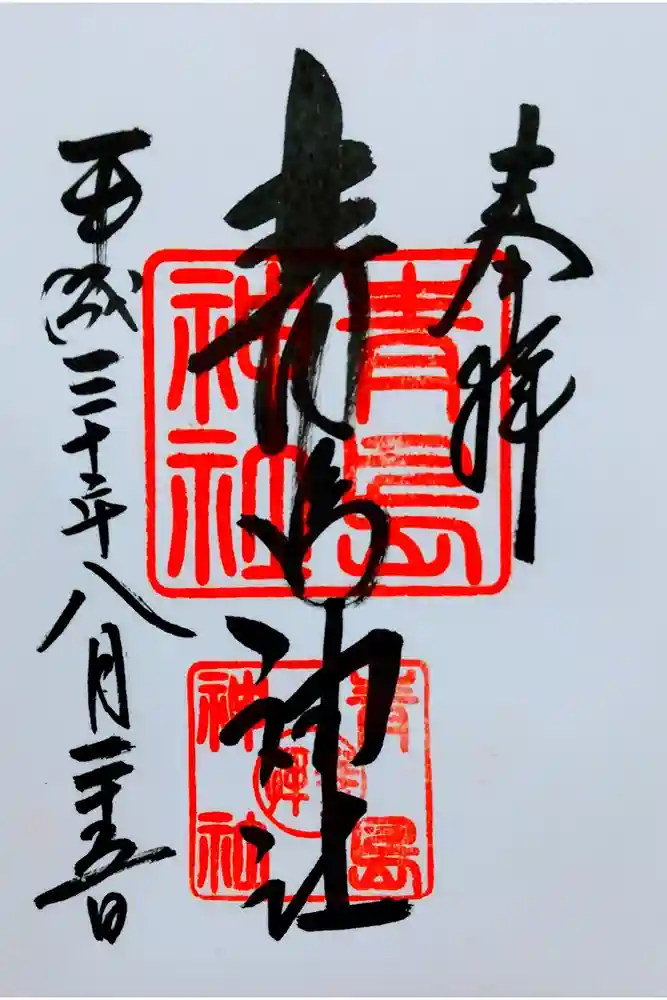 奉拝
青島神社
平成三十年八月二十五日
青島
神社
青島
神社